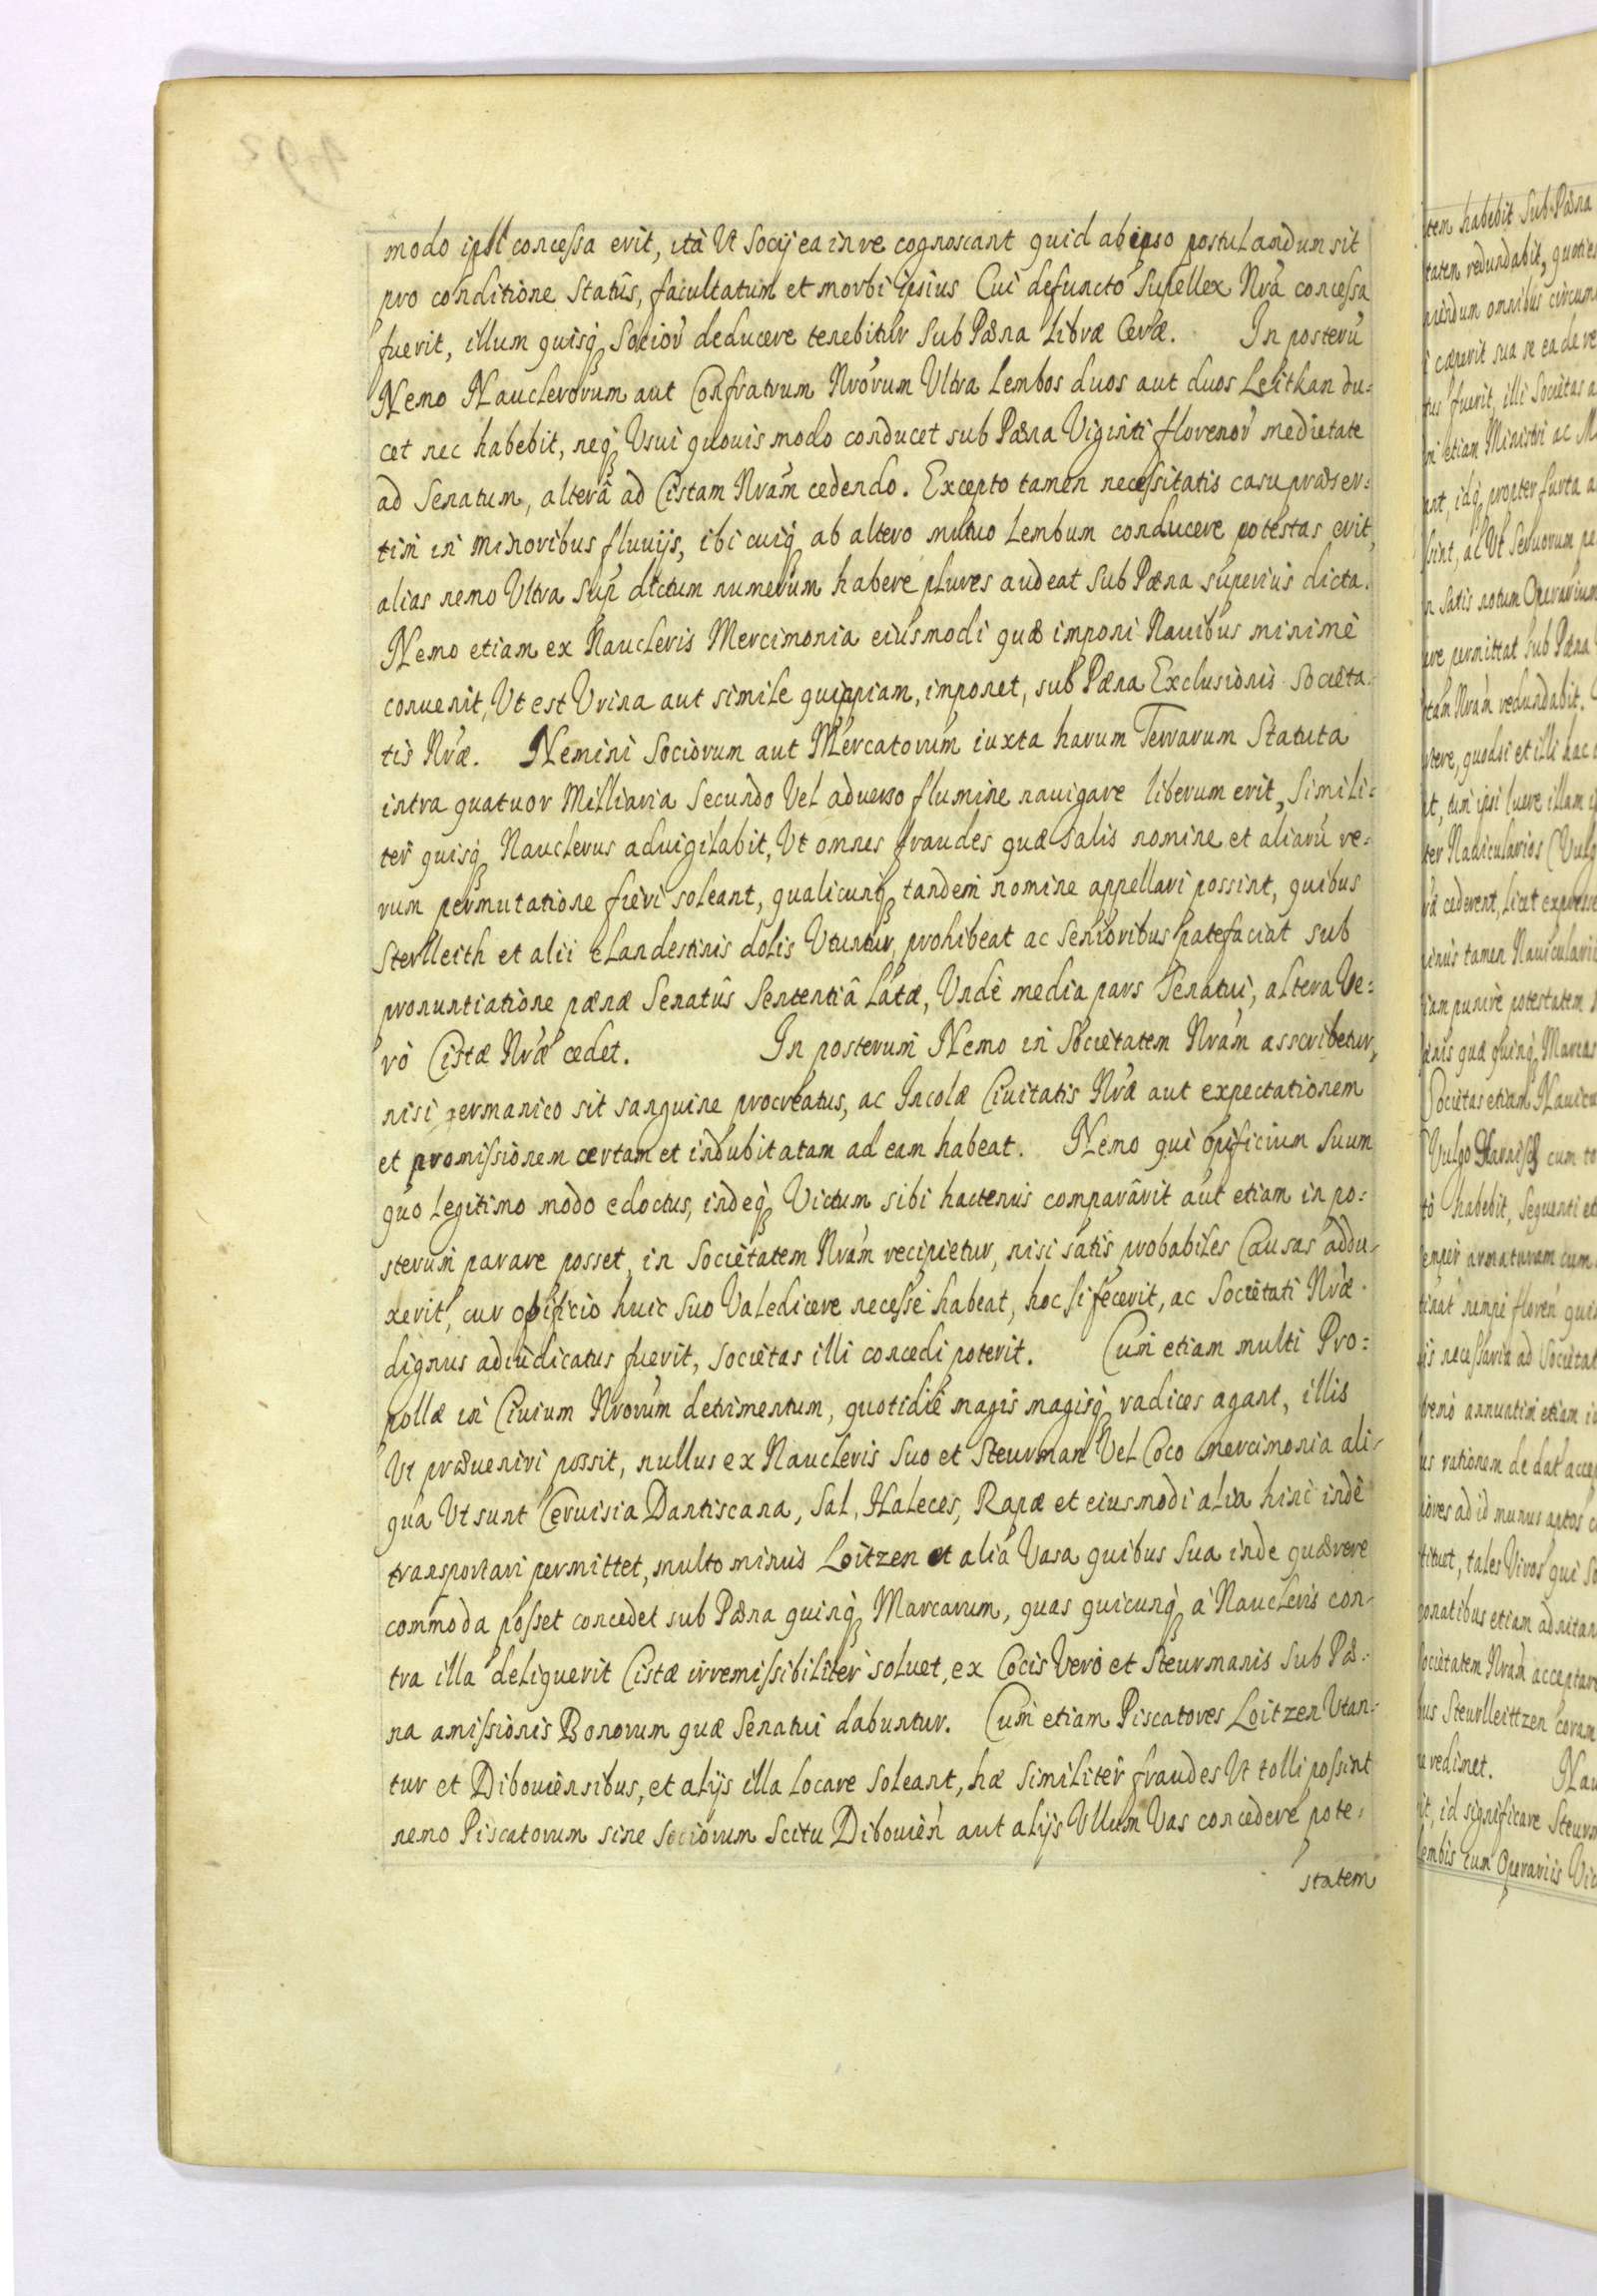 modo ipsi concessa erit, ità Ut Socij ea in re cognoscant quid ab ipso postulandum sit
pro conditione Statûs, facultatum et morbi ipsius Cui defuncto Supellex Nrá concessa
fuerit, illum quisq̨ Socior̃ deducere tenebitur Sub Pæna Libræ Ceræ. In posterũ
Nemo Nauclerorum aut Confratrum Nrórum Ultra Lembos duos aut duos Leithan du=
cet nec habebit, neq̨ Usui quouis modo conducet sub Pæna Viginti florenor̃ medietate
ad Senatum, alterâ ad Cistam Nrám cedendo. Excepto tamen necessitatis casu præser=
tim in minoribus fluuijs, ibi cuiq̨ ab altero mutuo Lembum conducere potestas erit,
alias nemo Ultra sup̃ dictum numerum habere plures audeat Sub Pæna superius dicta.
Nemo etiam ex Naucleris Mercimonia eiusmodi quæ imponi Nauibus minimè
conuenit, Ut est Vrina aut simile quippiam, imponet, sub Pæna Exclusionis Societa-
tis Nrǽ. Nemini Sociorum aut Mercatorum iuxta harum Terrarum Statuta
intra quatuor Milliaria Secundo Vel aduerso flumine nauigare liberum erit, Simili=
ter quisq̨ Nauclerus aduigilabit, Ut omnes fraudes quæ Salis nomine et aliarũ re=
rum permutatione fieri soleant, qualicunq̨ tandem nomine appellari possint, quibus
Sterlleith et alii clandestinis dolis Utuntur, prohibeat ac Senioribus patefaciat sub
pronuntiatione pænæ Senatûs Sententiâ latæ, Undè media pars Senatui, altera Ve=
rò Cistæ Nrǽ cedet. In posterum Nemo in Societatem Nrám asscribetur,
nisi germanico sit sanguine procreatus, ac Incolæ Ciuitatis Nrǽ aut expectationem
et promissionem certam et indubitatam ad eam habeat. Nemo qui opificium Suum
quo legitimo modo edoctus, indeq̨ Victum sibi hactenus comparârit aut etiam in po=
sterum parare posset, in Societatem Nrám recipietur, nisi satis probabiles Causas addu-
xerit, cur opificio huic Suo Valedicere necesse habeat, hoc si fecerit, ac Societati Nrǽ
dignus adiudicatus fuerit, Societas illi concedi poterit. Cum etiam multi Pro=
pollæ in Ciuium Nrorúm detrimentum, quotidiè magis magisq̨ radices agant, illis
Ut præueniri possit, nullus ex Naucleris Suo et Steurman Vel Coco mercimonia ali-
qua Ut sunt Ceruisia Dantiscana, Sal, Haleces, Rapæ et eiusmodi alia hinc indè
transportari permittet, multo minus Loitzen et alia Vasa quibus Sua inde quærere
commoda posset concedet sub Pæna quinq̨ Marcarum, quas quicunq̨ à Naucleris con-
tra illa deliquerit Cistæ irremissibiliter soluet, ex Cocis Verò et Steurmanis Sub Pæ-
na amissionis Bonorum quæ Senatui dabuntur. Cum etiam Piscatores Loitzen Utan-
tur et Dibouiensibus, et alijs illa Locare Soleant, hæ Similiter fraudes Ut tolli possint
nemo Piscatorum sine Sociorum Scitu Dibouień aut alijs Ullum Vas concedere pote=
statem
tem habebit Sub Pæna
tatem redundabit, quoties
omnibus circum
cæperit sua se ea de re
tus fuerit, illi Societas a
etiam Ministri ac M
ant, idq̨ propter furta a
sint, ac Ut Seruorum pe
satis notum Operarium
permittat Sub Pæna
tam Nrám redundabit.
quodsi et illi hac
ipsi luere illam
ter Nauicularios (Vulg
cederent, licet expresse
minus tamen Nauiculari
iam punire potestatem
quæ quinq̨ Marcas
Societas etiam Nauicu
Vulgo Harnisch cum to
tò habebit, Sequenti et
semper armaturam cum
nempe floreń quin
is necessaria ad Societat
annuatim etiam in
us rationem de dat acce
iores ad id munus aptos c
tituet, tales Viros qui So
onatibus etiam adnitan
Societatem Nrám acceptare
bus Steurlleittzen coram
redimet. Nau
it, id significare Steurm
Lembis cum Operariis Vic